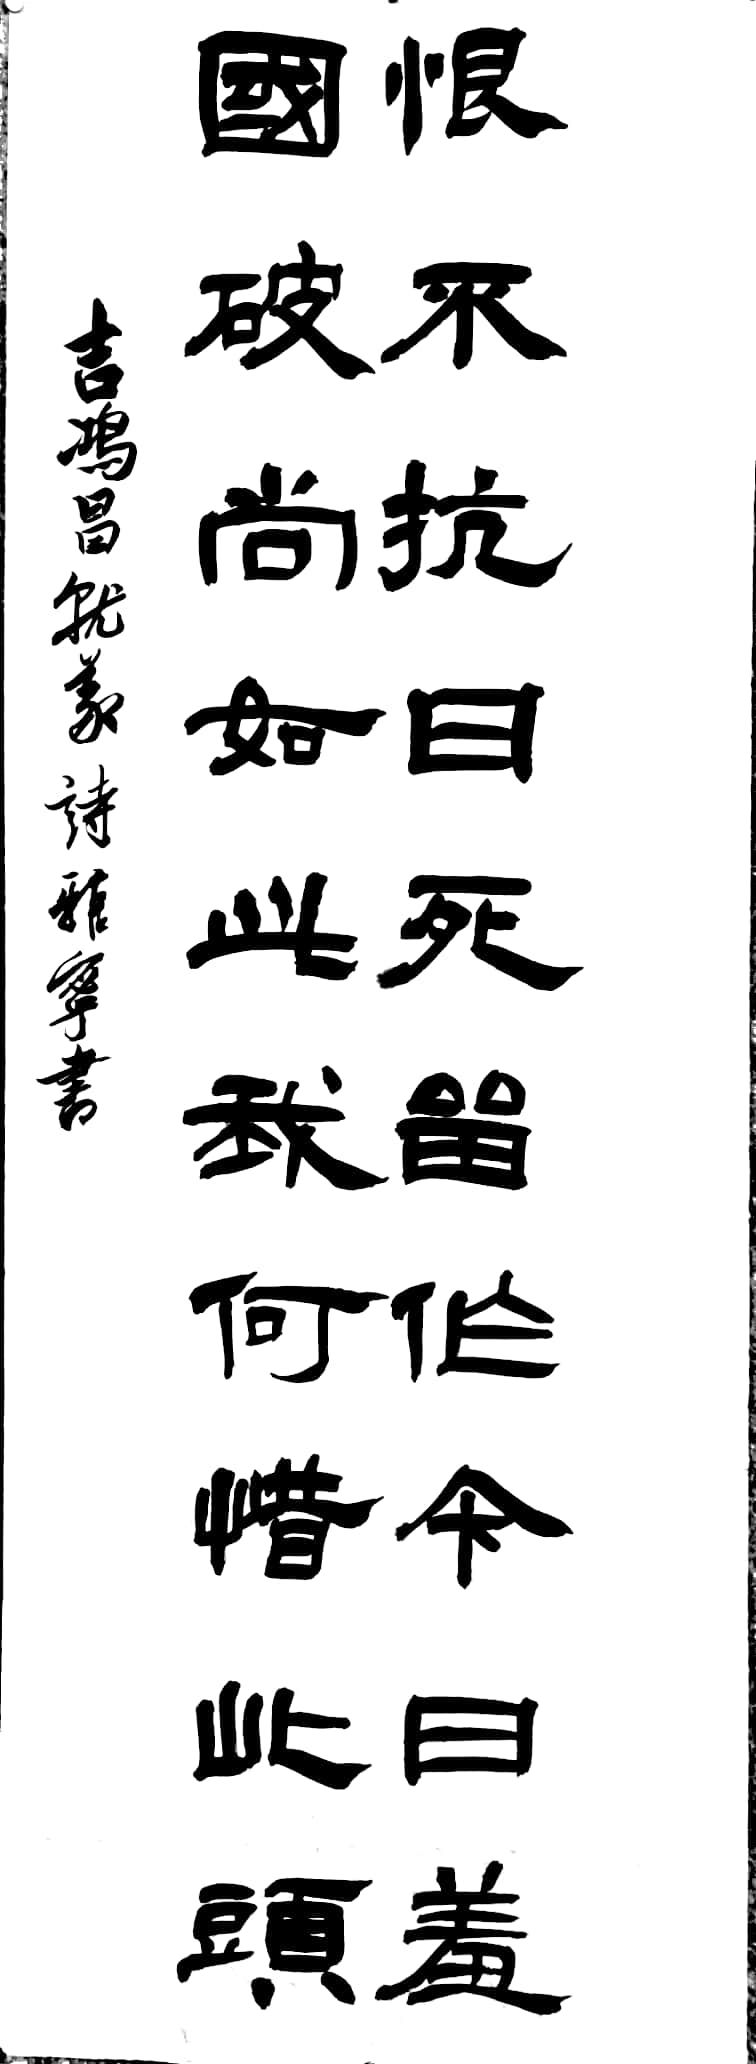 恨不抗日死留作今日羞
國破尚如此我何惜此頭
吉鴻昌就義詩雅寧書